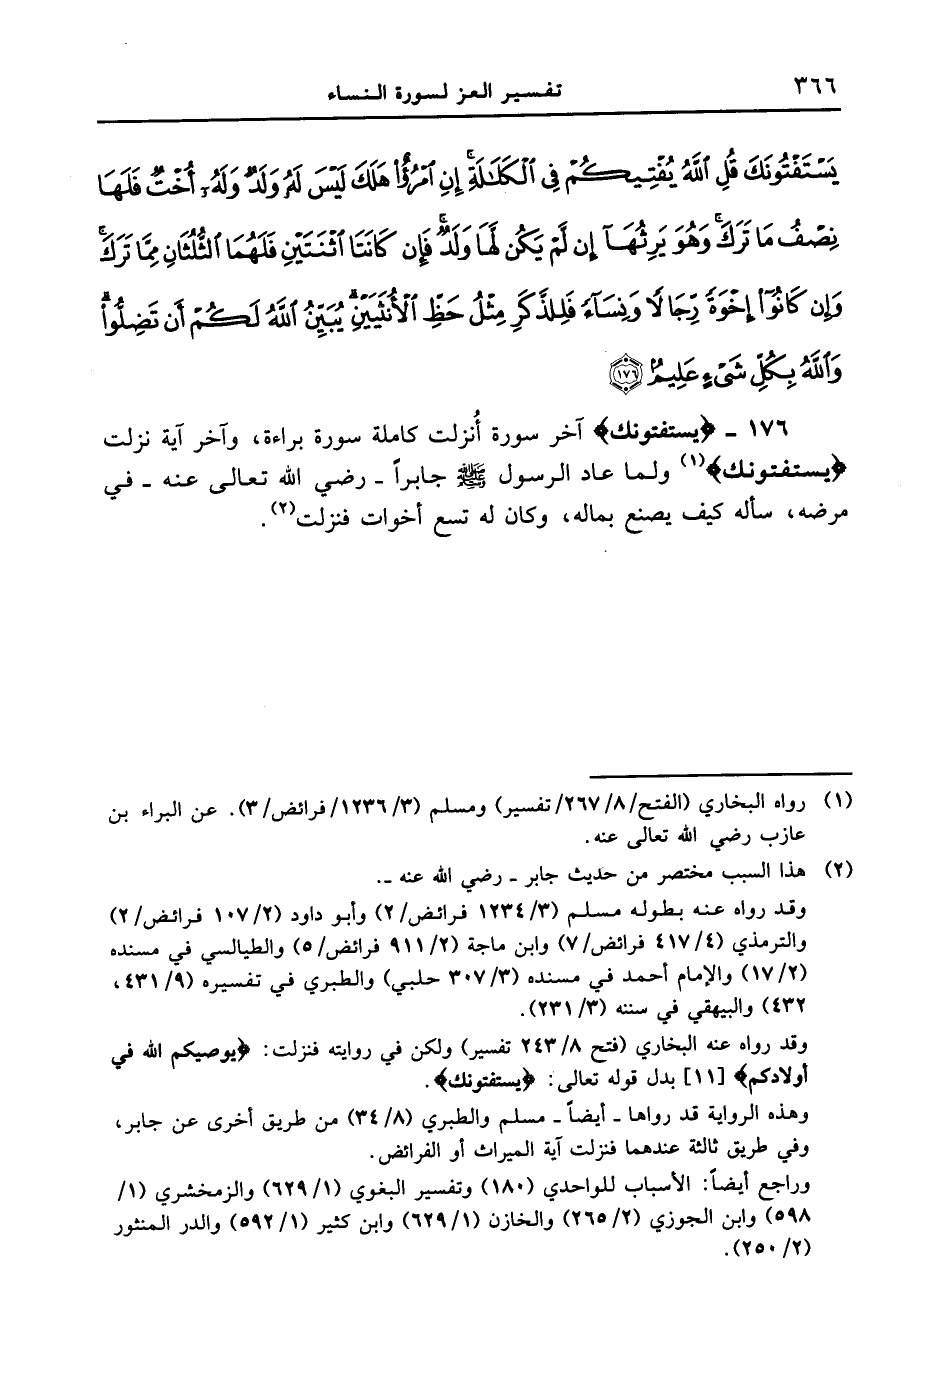 ٣٦٦
تفسير العز لسورة النساء
يَسْتَفْتُونَكَ قُلِ ٱللَّهُ يُفْتِيكُمْ فِى ٱلْكَلَٰلَةِ ۚ إِنِ ٱمْرُؤٌا۟ هَلَكَ لَيْسَ لَهُۥ وَلَدٌ وَلَهُۥٓ أُخْتٌ فَلَهَا
نِصْفُ مَا تَرَكَ ۚ وَهُوَ يَرِثُهَآ إِن لَّمْ يَكُن لَّهَا وَلَدٌ ۚ فَإِن كَانَتَا ٱثْنَتَيْنِ فَلَهُمَا ٱلثُّلُثَانِ مِمَّا تَرَكَ ۚ
وَإِن كَانُوٓا۟ إِخْوَةً رِّجَالًا وَنِسَآءً فَلِلذَّكَرِ مِثْلُ حَظِّ ٱلْأُنثَيَيْنِ ۗ يُبَيِّنُ ٱللَّهُ لَكُمْ أَن تَضِلُّوا۟ ۗ
وَٱللَّهُ بِكُلِّ شَىْءٍ عَلِيمٌۢ ﴿١٧٦﴾
١٧٦ - ﴿يستفتونك﴾ آخر سورة أُنزلت كاملة سورة براءة، وآخر آية نزلت
﴿يستفتونك﴾(١) ولما عاد الرسول ﷺ جابراً - رضي الله تعالى عنه - في
مرضه، سأله كيف يصنع بماله، وكان له تسع أخوات فنزلت(٢).
(١) رواه البخاري (الفتح/٨/٢٦٧/تفسير) ومسلم (٣/١٢٣٦/فرائض/٣). عن البراء بن
عازب رضي الله تعالى عنه.
(٢) هذا السبب مختصر من حديث جابر - رضي الله عنه -.
وقد رواه عنه بطوله مسلم (٣/١٢٣٤ فرائض/٢) وأبو داود (٢/١٠٧ فرائض/٢)
والترمذي (٤/٤١٧ فرائض/٧) وابن ماجة (٢/٩١١ فرائض/٥) والطيالسي في مسنده
(٢/١٧) والإمام أحمد في مسنده (٣/٣٠٧ حلبي) والطبري في تفسيره (٩/٤٣١،
٤٣٢) والبيهقي في سننه (٣/٢٣١).
وقد رواه عنه البخاري (فتح ٨/٢٤٣ تفسير) ولكن في روايته فنزلت: ﴿يوصيكم الله في
أولادكم﴾ [١١] بدل قوله تعالى: ﴿يستفتونك﴾.
وهذه الرواية قد رواها - أيضاً - مسلم والطبري (٨/٣٤) من طريق أخرى عن جابر،
وفي طريق ثالثة عندهما فنزلت آية الميراث أو الفرائض.
وراجع أيضاً: الأسباب للواحدي (١٨٠) وتفسير البغوي (١/٦٢٩) والزمخشري (١/
٥٩٨) وابن الجوزي (٢/٢٦٥) والخازن (١/٦٢٩) وابن كثير (١/٥٩٢) والدر المنثور
(٢/٢٥٠).